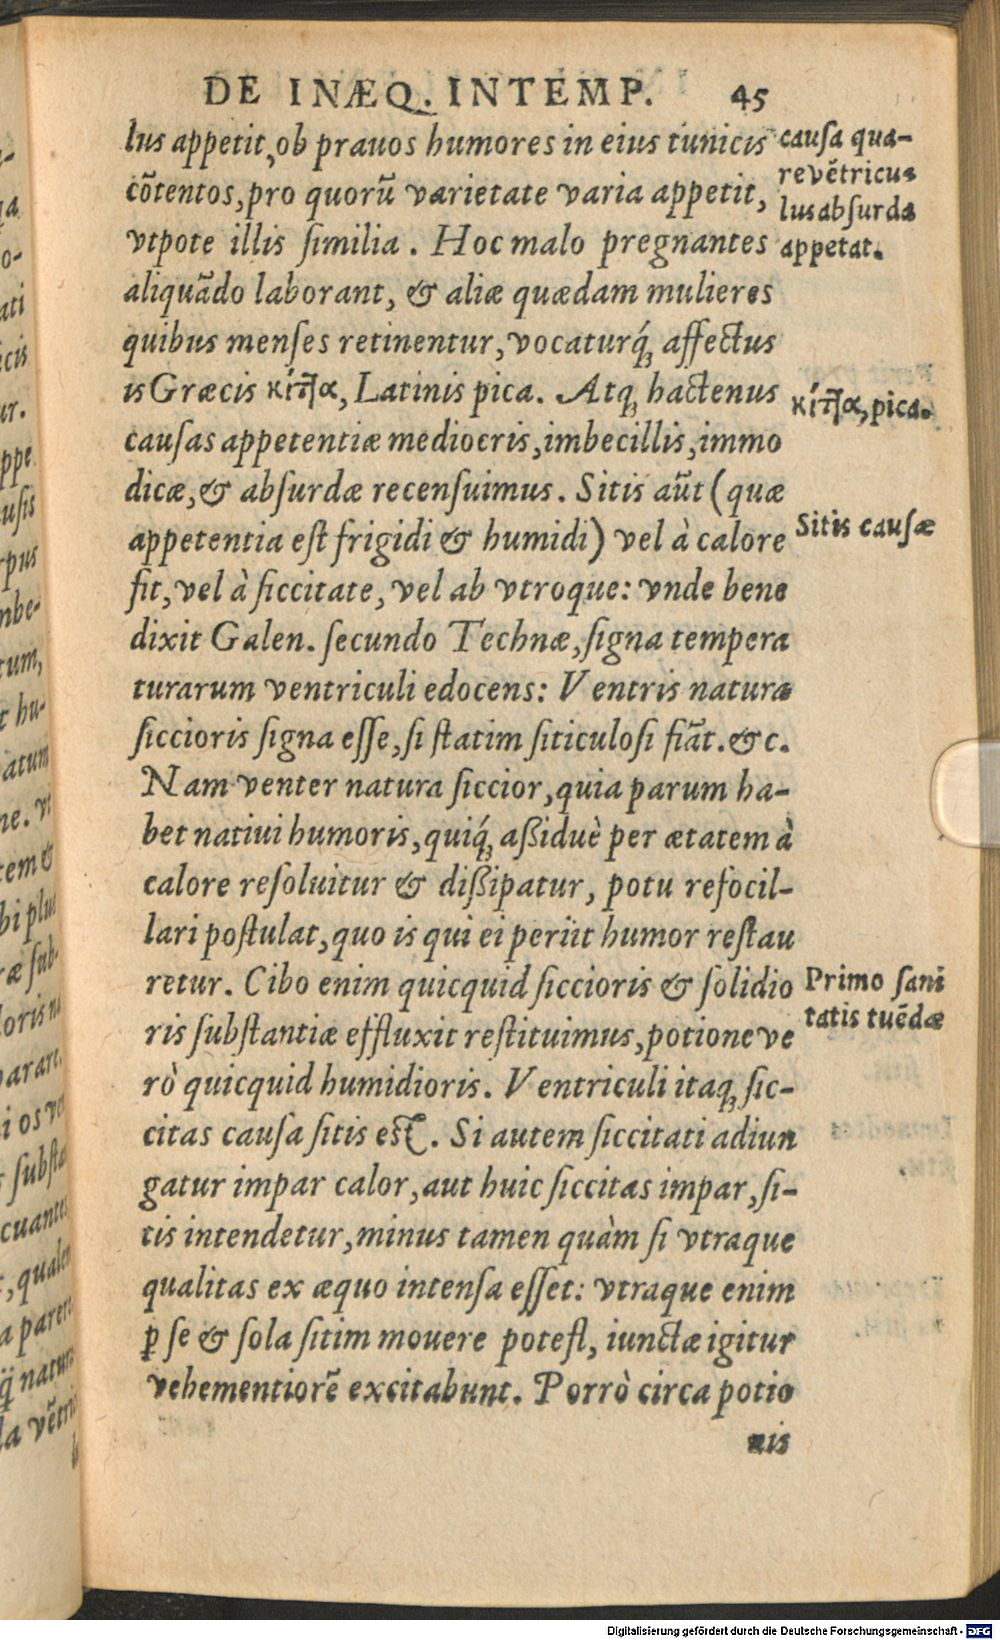 DE INÆQ. INTEMP. 45
lus appetit, ob prauos humores in eius tunicis
cõtentos, pro quorũ varietate varia appetit,
vtpote illis ſimilia. Hoc malo pregnantes
aliquãdo laborant, & aliæ quædam mulieres
quibus menſes retinentur, vocaturq́; affectus
is Græcis κίττα, Latinis pica. Atq; hactenus
cauſas appetentiæ mediocris, imbecillis, immo
dicæ, & abſurdæ recenſuimus. Sitis aũt (quæ
appetentia eſt frigidi & humidi) vel à calore
fit, vel à ſiccitate, vel ab vtroque: vnde bene
dixit Galen. ſecundo Technæ, ſigna tempera
turarum ventriculi edocens: Ventris natura
ſiccioris ſigna eſſe, ſi ſtatim ſiticuloſi fiãt. &c.
Nam venter natura ſiccior, quia parum ha-
bet natiui humoris, quiq́; aßiduè per ætatem à
calore reſoluitur & dißipatur, potu refocil-
lari poſtulat, quo is qui ei periit humor reſtau
retur. Cibo enim quicquid ſiccioris & ſolidio
ris ſubſtantiæ effluxit reſtituimus, potione ve
rò quicquid humidioris. Ventriculi itaq; ſic-
citas cauſa ſitis eſt. Si autem ſiccitati adiun
gatur impar calor, aut huic ſiccitas impar, ſi-
tis intendetur, minus tamen quàm ſi vtraque
qualitas ex æquo intenſa eſſet: vtraque enim
ꝑ ſe & ſola ſitim mouere poteſt, iunctæ igitur
vehementiorẽ excitabunt. Porrò circa potio
nis
cauſa qua-
re vẽtricus
lus abſurda
appetat.
κίττα, pica.
Sitis cauſæ
Primo ſani
tatis tuẽdæ
Digitalisierung gefördert durch die Deutsche Forschungsgemeinschaft - DFG